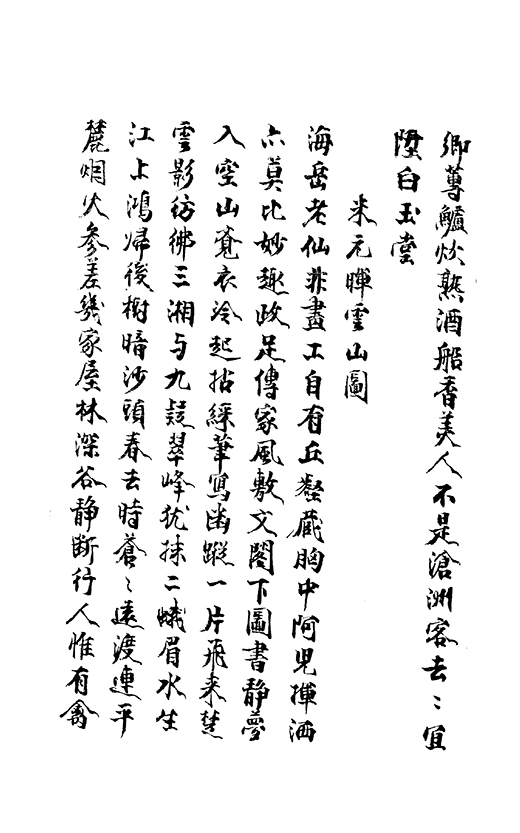 鄉蓴鱸炊熟酒船香美人不是滄洲客去〻宜
陞白玉堂
米元暉雲山圖
海岳老仙非畫工自有丘壑藏胸中阿兒揮洒
亦莫比妙趣政足傳家風敷文閣下圖書静夢
入空山蒼衣冷起拈綵筆寫幽蹤一片飛来楚
雲影彷彿三湘与九疑翠峰犹抹二蛾眉水生
江上鴻歸後樹暗沙頭春去時蒼〻遠渡連平
麓烟火參差幾家屋林深谷静斷行人惟有禽